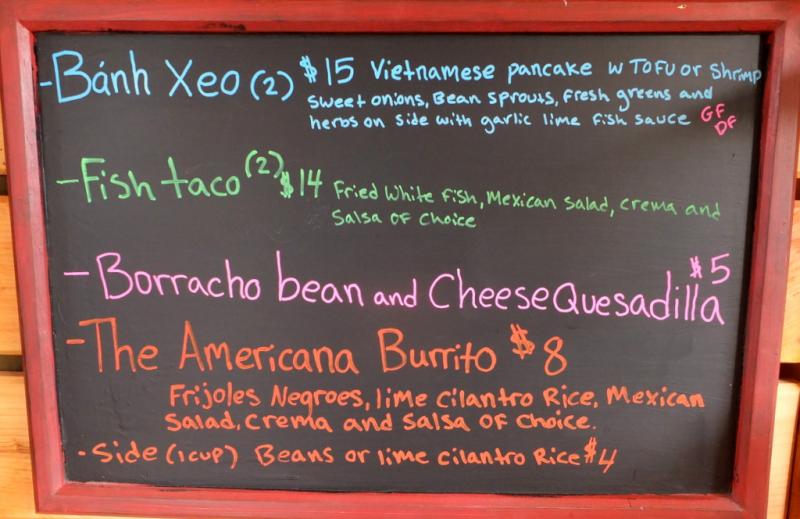 -Bánh Xeo (2) $15 Vietnamese pancake w TOFU or Shrimp
Sweet onions, Bean sprouts, fresh greens and
herbs on side with garlic lime fish sauce GF
DF
-Fish taco (2) $14 Fried White Fish, Mexican Salad, crema and
Salsa of Choice
-Borracho bean and Cheese Quesadilla $5
-The Americana Burrito $8
Frijoles Negroes, lime cilantro Rice, Mexican
Salad, Crema and Salsa of Choice.
·Side (1 cup) Beans or lime cilantro Rice $4